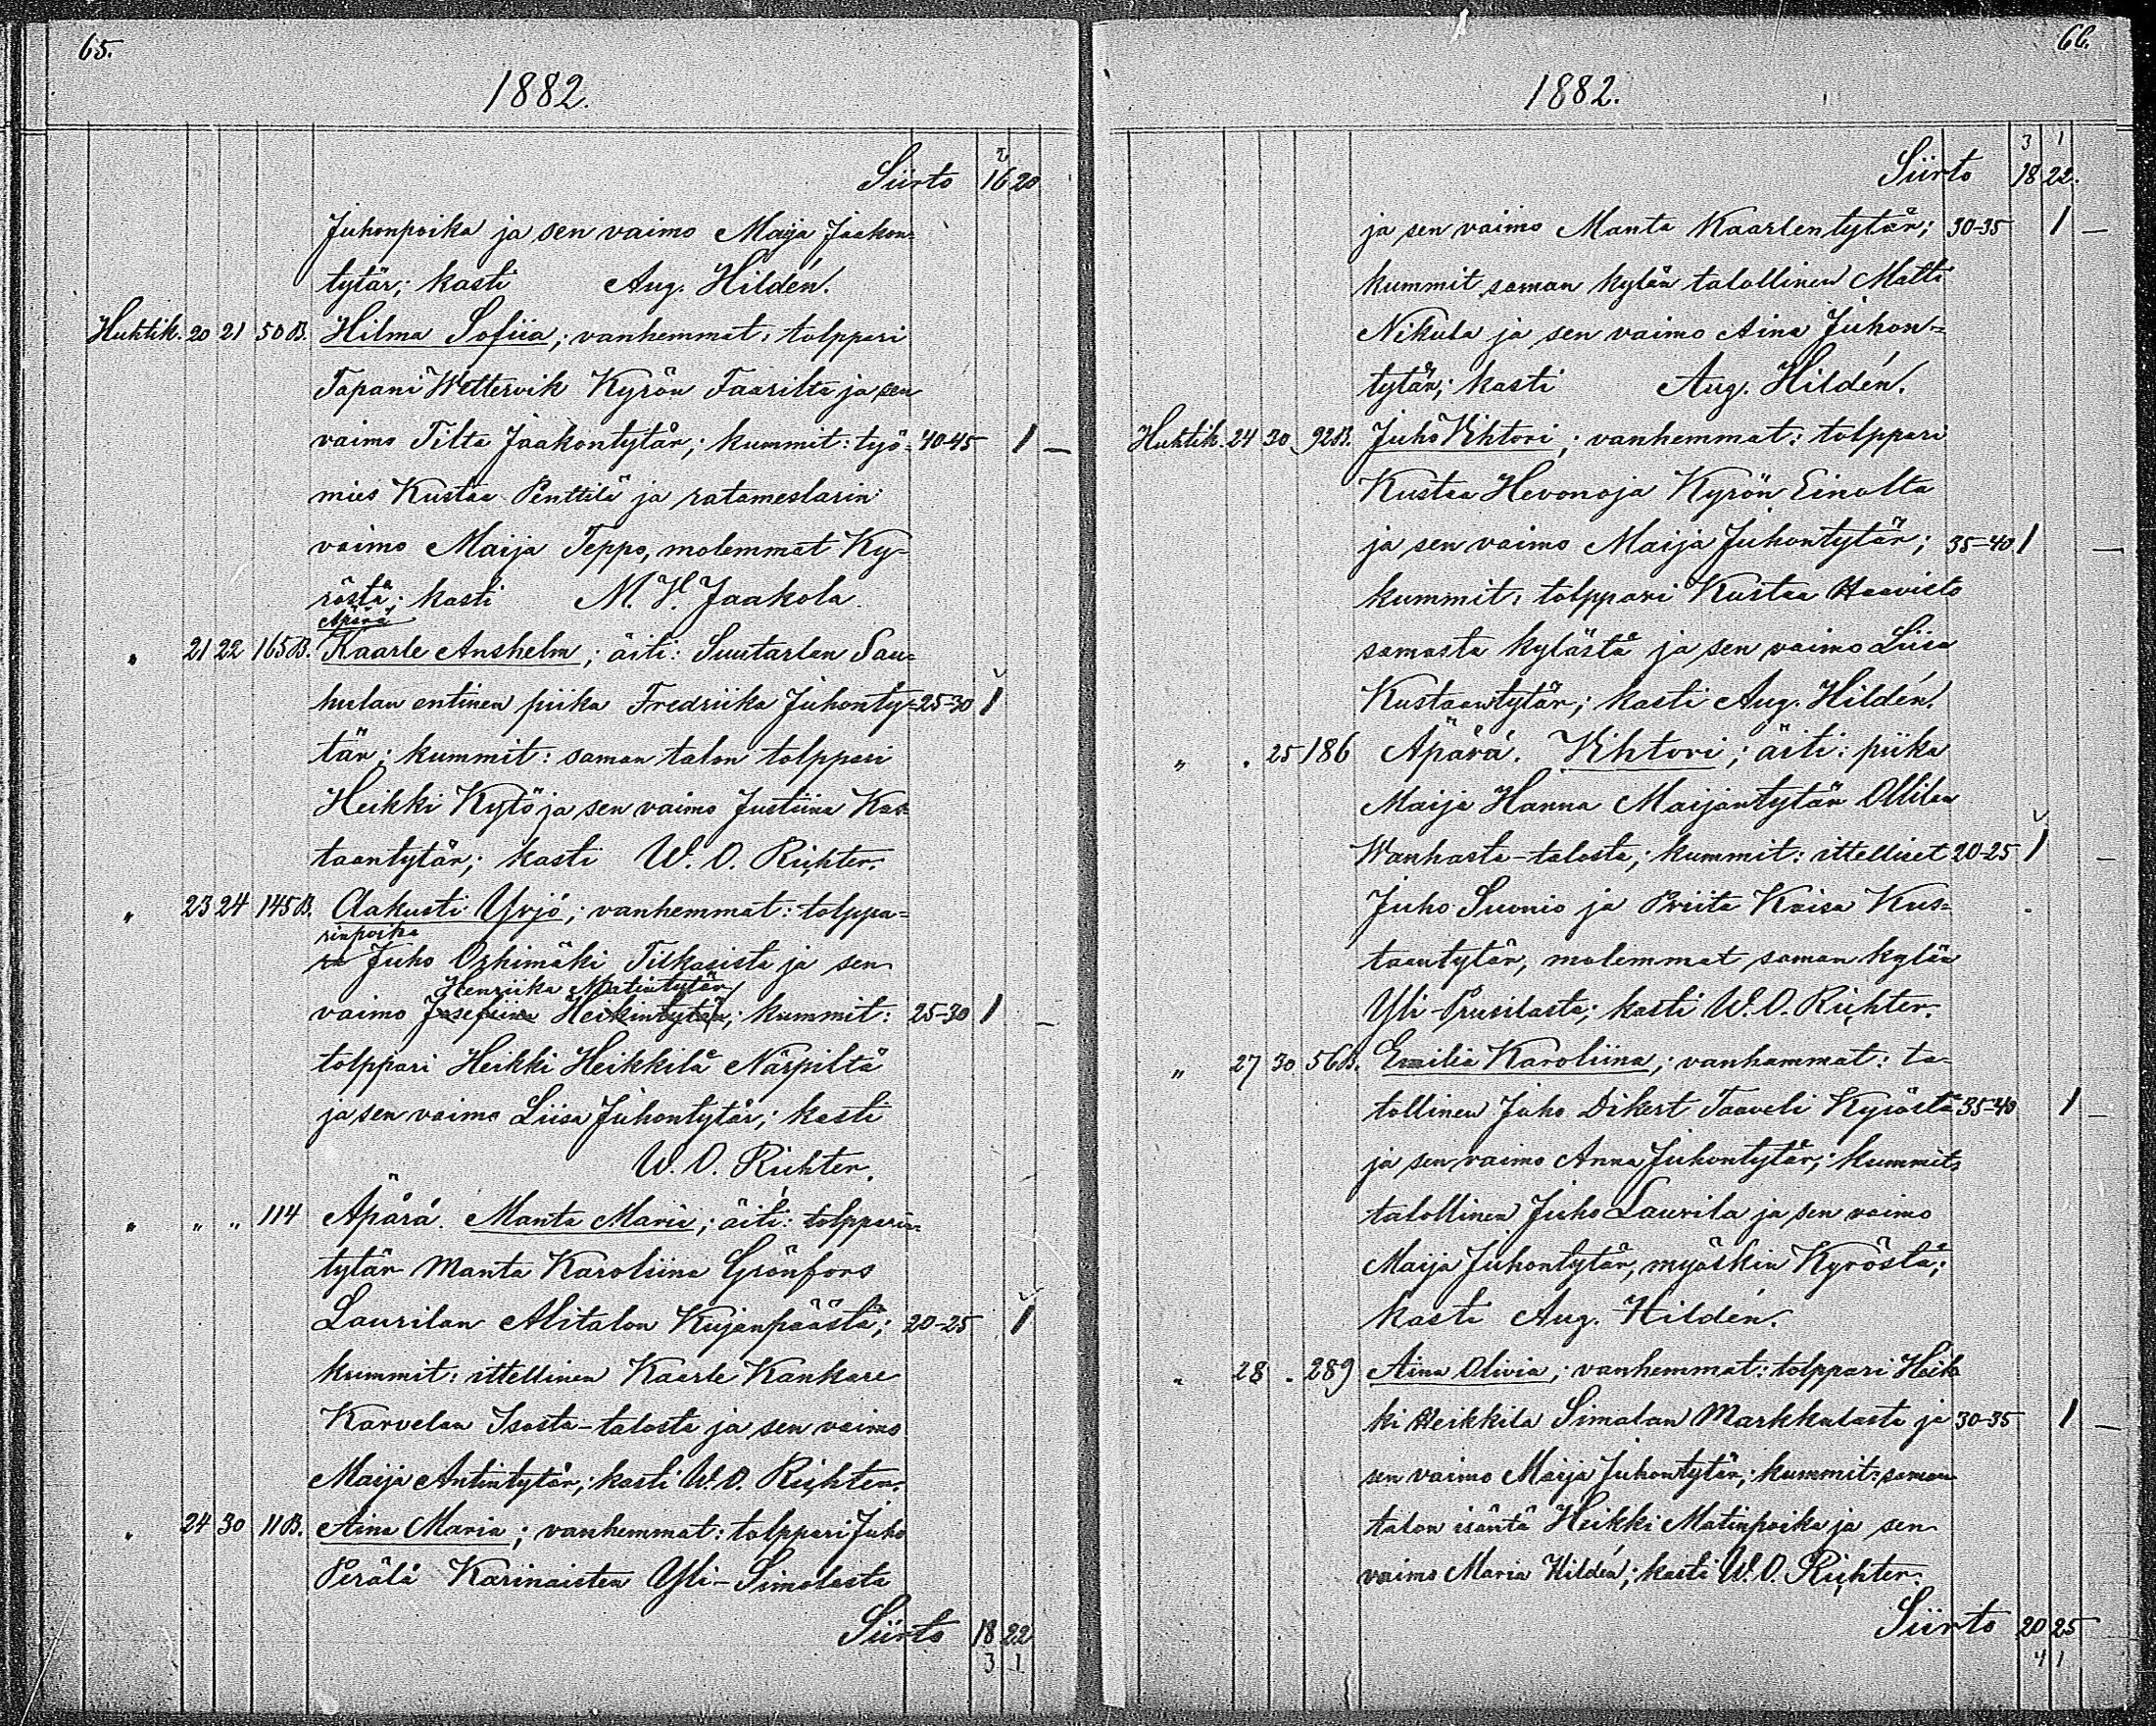 65.
1882.
Siirto 16 20
2
Juhonpoika ja sen vaimo Maija Jaakon-
tytär; kasti Aug. Hildén.
Huhtik. 20 21 50 B. Hilma Sofiia; vanhemmat: tolppari
Tapani Wettervik Kyrön Faarilta ja sen
vaimo Tilta Jaakontytär; kummit: työ- 40-45 1 —
mies Kustaa Penttilä ja ratamestarin
vaimo Maija Teppo, molemmat Ky-
röstä; kasti M. H. Jaakola
Äpärä
" 21 22 165 B. Kaarle Anshelm; äiti: Suutarlan Sau-
hulan entinen piika Fredriika Juhonty- 25-30 1
tär; kummit: saman talon tolppari
Heikki Kytö ja sen vaimo Justiina Kus-
taantytär; kasti W. O. Richter.
" 23 24 145 B. Aakusti Yrjö; vanhemmat: tolppa-
rinpoika
ri Juho Orhimäki Tilkasista ja sen
Henriika Matintytär
vaimo Josefiina Heikintytär; kummit: 25-30 1 —
tolppari Heikki Heikkilä Närpiltä
ja sen vaimo Liisa Juhontytär; kasti
W. O. Richter.
" " " 114 Äpärä. Manta Maria; äiti: tolpparin-
tytär Manta Karoliina Grönfors
Laurilan Alitalon Kujanpäästä; 20-25 1
kummit: ittellinen Kaarle Kankare
Karvelan Isosta-talosta ja sen vaimo
Maija Antintytär; kasti W. O. Richter.
" 24 30 11 B. Aina Maria; vanhemmat: tolppari Juho
Perälä Karinaisten Yli-Simolasta
Siirto 18 22
3 1
66.
1882.
3 1
Siirto 18 22.
ja sen vaimo Manta Kaarlentytär; 30-35 1 —
kummit saman kylän talollinen Matti
Nikula ja sen vaimo Aina Juhon-
tytär; kasti Aug. Hildén.
Huhtik. 24 30 92 B. Juho Vihtori; vanhemmat: tolppari
Kustaa Hevonoja Kyrön Einolta
ja sen vaimo Maija Juhontytär; 35-40 1 —
kummit: tolppari Kustaa Haavisto
samasta kylästä ja sen vaimo Liisa
Kustaantytär; kasti Aug. Hildén.
" " 25 186 Äpärä. Vihtori; äiti: piika
Maija Hanna Maijantytär Ollilan
Wanhasta-talosta; kummit: ittelliset 20-25 1 —
Juho Suonio ja Priita Kaisa Kus-
taantytär, molemmat saman kylän
Yli-Prusilasta; kasti W. O. Richter.
" 27 30 56 B. Emilia Karoliina; vanhammat: ta-
tollinen Juho Dikert Taaveli Kyröstä 35-40 1 —
ja sen vaimo Anna Juhontytär; kummit:
talollinen Juho Laurila ja sen vaimo
Maija Juhontytär, myöskin Kyröstä;
kasti Aug. Hildén.
" 28 " 289 Aina Olivia; vanhemmat: tolppari Heik-
ki Heikkilä Simalan Markkulasta ja 30-35 1 —
sen vaimo Maija Juhontytär; kummit: saman
talon isäntä Heikki Matinpoika ja sen
vaimo Maria Hildén; kasti W. O. Richter.
Siirto 20 25
4 1